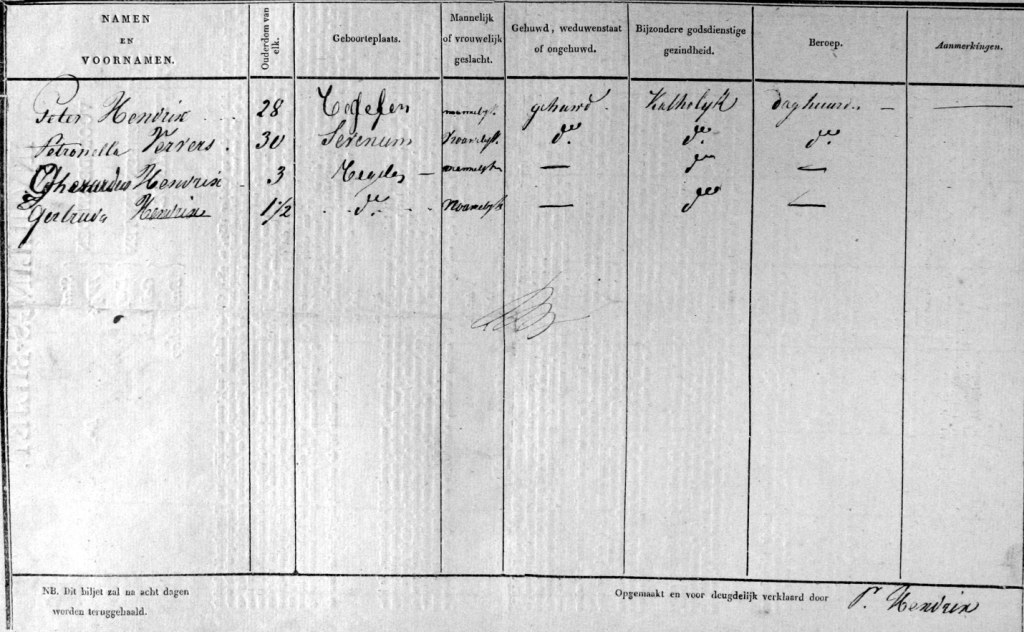 NAMEN EN VOORNAMEN. Ouderdom van elk. Geboorteplaats. Mannelijk of vrouwelijk geslacht. Gehuwd, weduwenstaat of ongehuwd. Bijzondere godsdienstige gezindheid. Beroep. Aanmerkingen.
Peter Hendrix 28 Tegelen mannelyk. gehuwd. Katholyk
Petronella Ververs. 30 Sevenum Vrouwelyk. do. do. do.
Gherardus Hendrix 3 Tegelen – mannelyk — do —
Gertruda Hendrix 1 1/2 do. Vrouwelyk — do —
NB. Dit biljet zal na acht dagen
werden teruggehaald.
Opgemaakt en voor deugdelijk verklaard door P. Hendrix